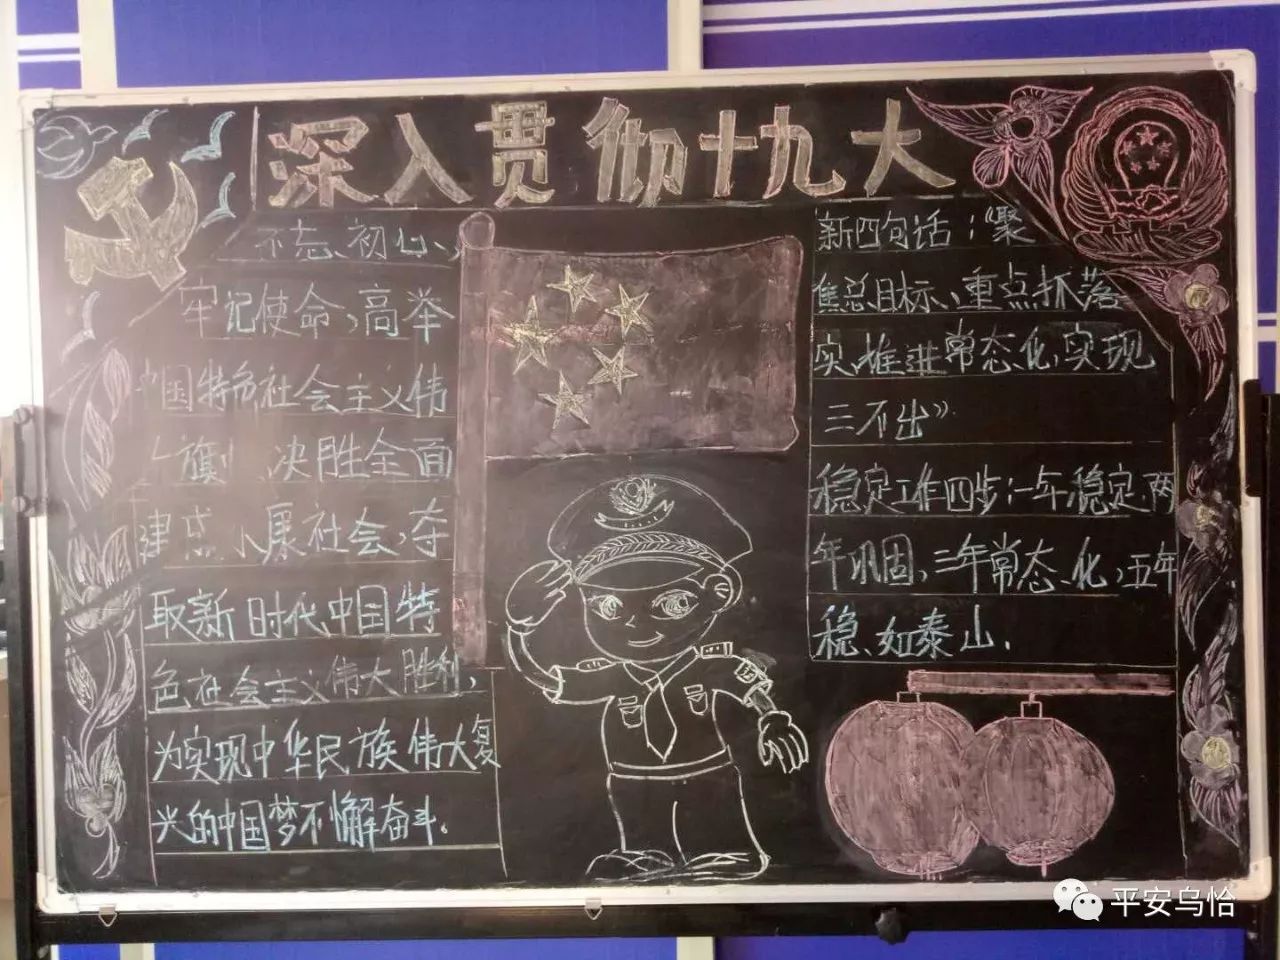 深入贯彻十九大
不忘初心、
牢记使命,高举
中国特色社会主义伟
大旗帜、决胜全面
建成小康社会,夺
取新时代中国特
色社会主义伟大胜利,
为实现中华民族伟大复
兴的中国梦不懈奋斗。
新四句话:《聚
焦总目标、重点抓落
实、推进常态化、实现
三不出》.
稳定工作四步:一年稳定、两
年巩固、三年常态化,五年
稳如泰山.
平安乌恰